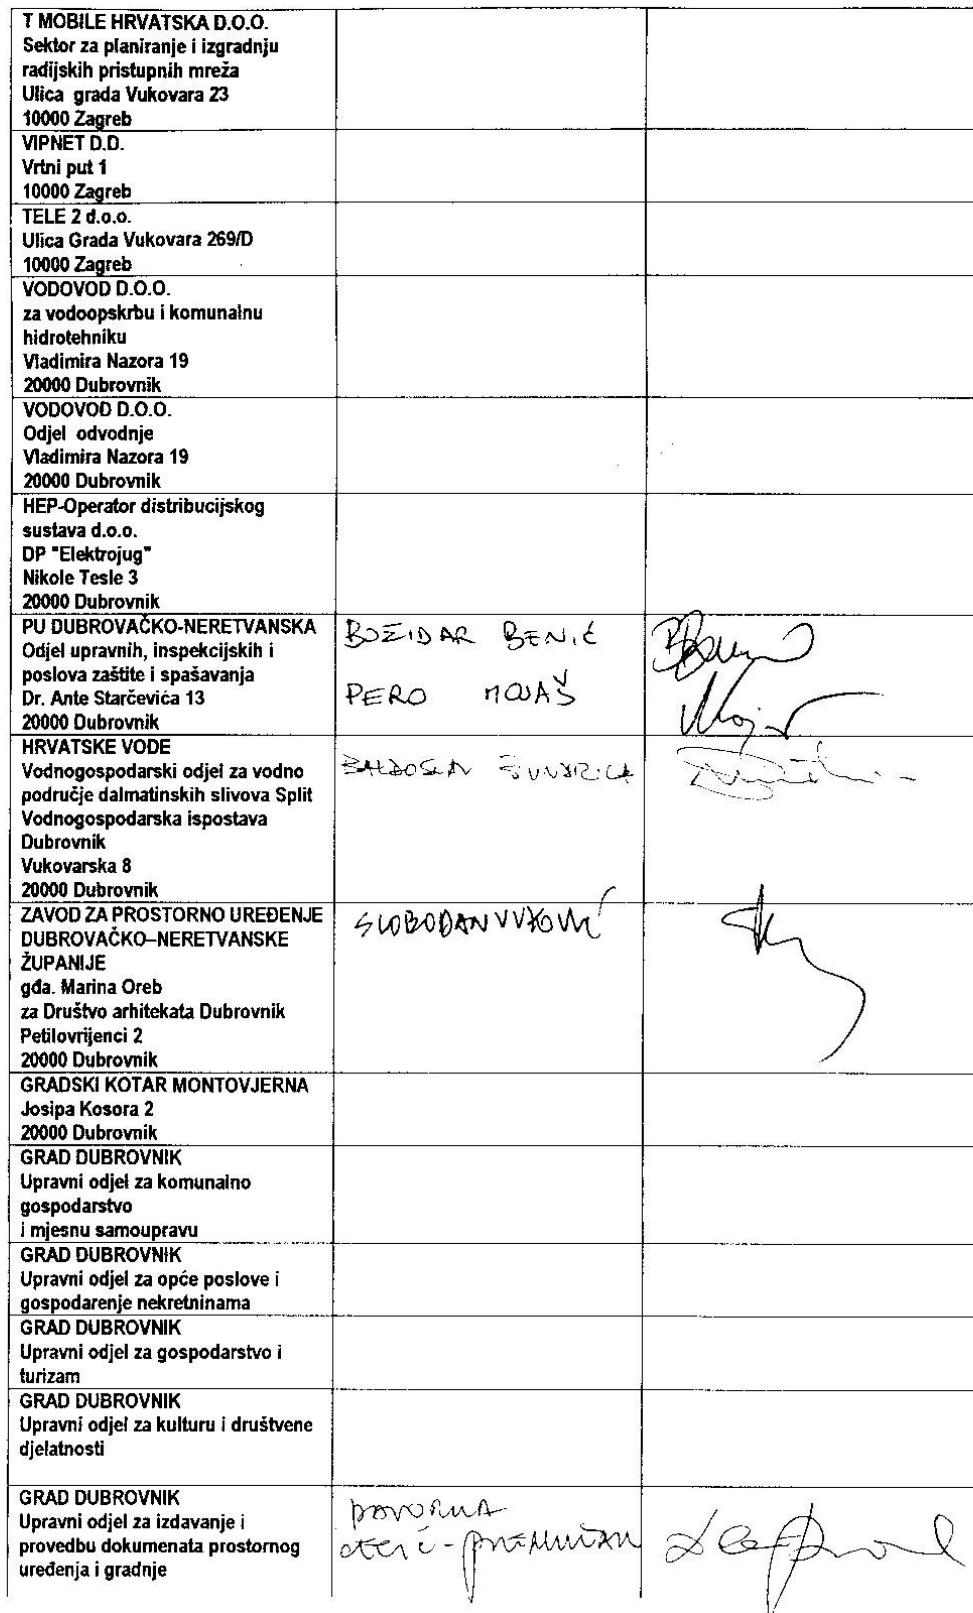 T MOBILE HRVATSKA D.O.O.
Sektor za planiranje i izgradnju
radijskih pristupnih mreža
Ulica grada Vukovara 23
10000 Zagreb
VIPNET D.D.
Vrtni put 1
10000 Zagreb
TELE 2 d.o.o.
Ulica Grada Vukovara 269/D
10000 Zagreb
VODOVOD D.O.O.
za vodoopskrbu i komunalnu
hidrotehniku
Vladimira Nazora 19
20000 Dubrovnik
VODOVOD D.O.O.
Odjel odvodnje
Vladimira Nazora 19
20000 Dubrovnik
HEP-Operator distribucijskog
sustava d.o.o.
DP "Elektrojug"
Nikole Tesle 3
20000 Dubrovnik
PU DUBROVAČKO-NERETVANSKA
Odjel upravnih, inspekcijskih i
poslova zaštite i spašavanja
Dr. Ante Starčevića 13
20000 Dubrovnik
BOŽIDAR BENIĆ
PERO MOJAŠ
HRVATSKE VODE
Vodnogospodarski odjel za vodno
područje dalmatinskih slivova Split
Vodnogospodarska ispostava
Dubrovnik
Vukovarska 8
20000 Dubrovnik
ZAVOD ZA PROSTORNO UREĐENJE
DUBROVAČKO–NERETVANSKE
ŽUPANIJE
gđa. Marina Oreb
za Društvo arhitekata Dubrovnik
Petilovrijenci 2
20000 Dubrovnik
SLOBODAN VUKOVIĆ
GRADSKI KOTAR MONTOVJERNA
Josipa Kosora 2
20000 Dubrovnik
GRAD DUBROVNIK
Upravni odjel za komunalno
gospodarstvo
i mjesnu samoupravu
GRAD DUBROVNIK
Upravni odjel za opće poslove i
gospodarenje nekretninama
GRAD DUBROVNIK
Upravni odjel za gospodarstvo i
turizam
GRAD DUBROVNIK
Upravni odjel za kulturu i društvene
djelatnosti
GRAD DUBROVNIK
Upravni odjel za izdavanje i
provedbu dokumenata prostornog
uređenja i gradnje